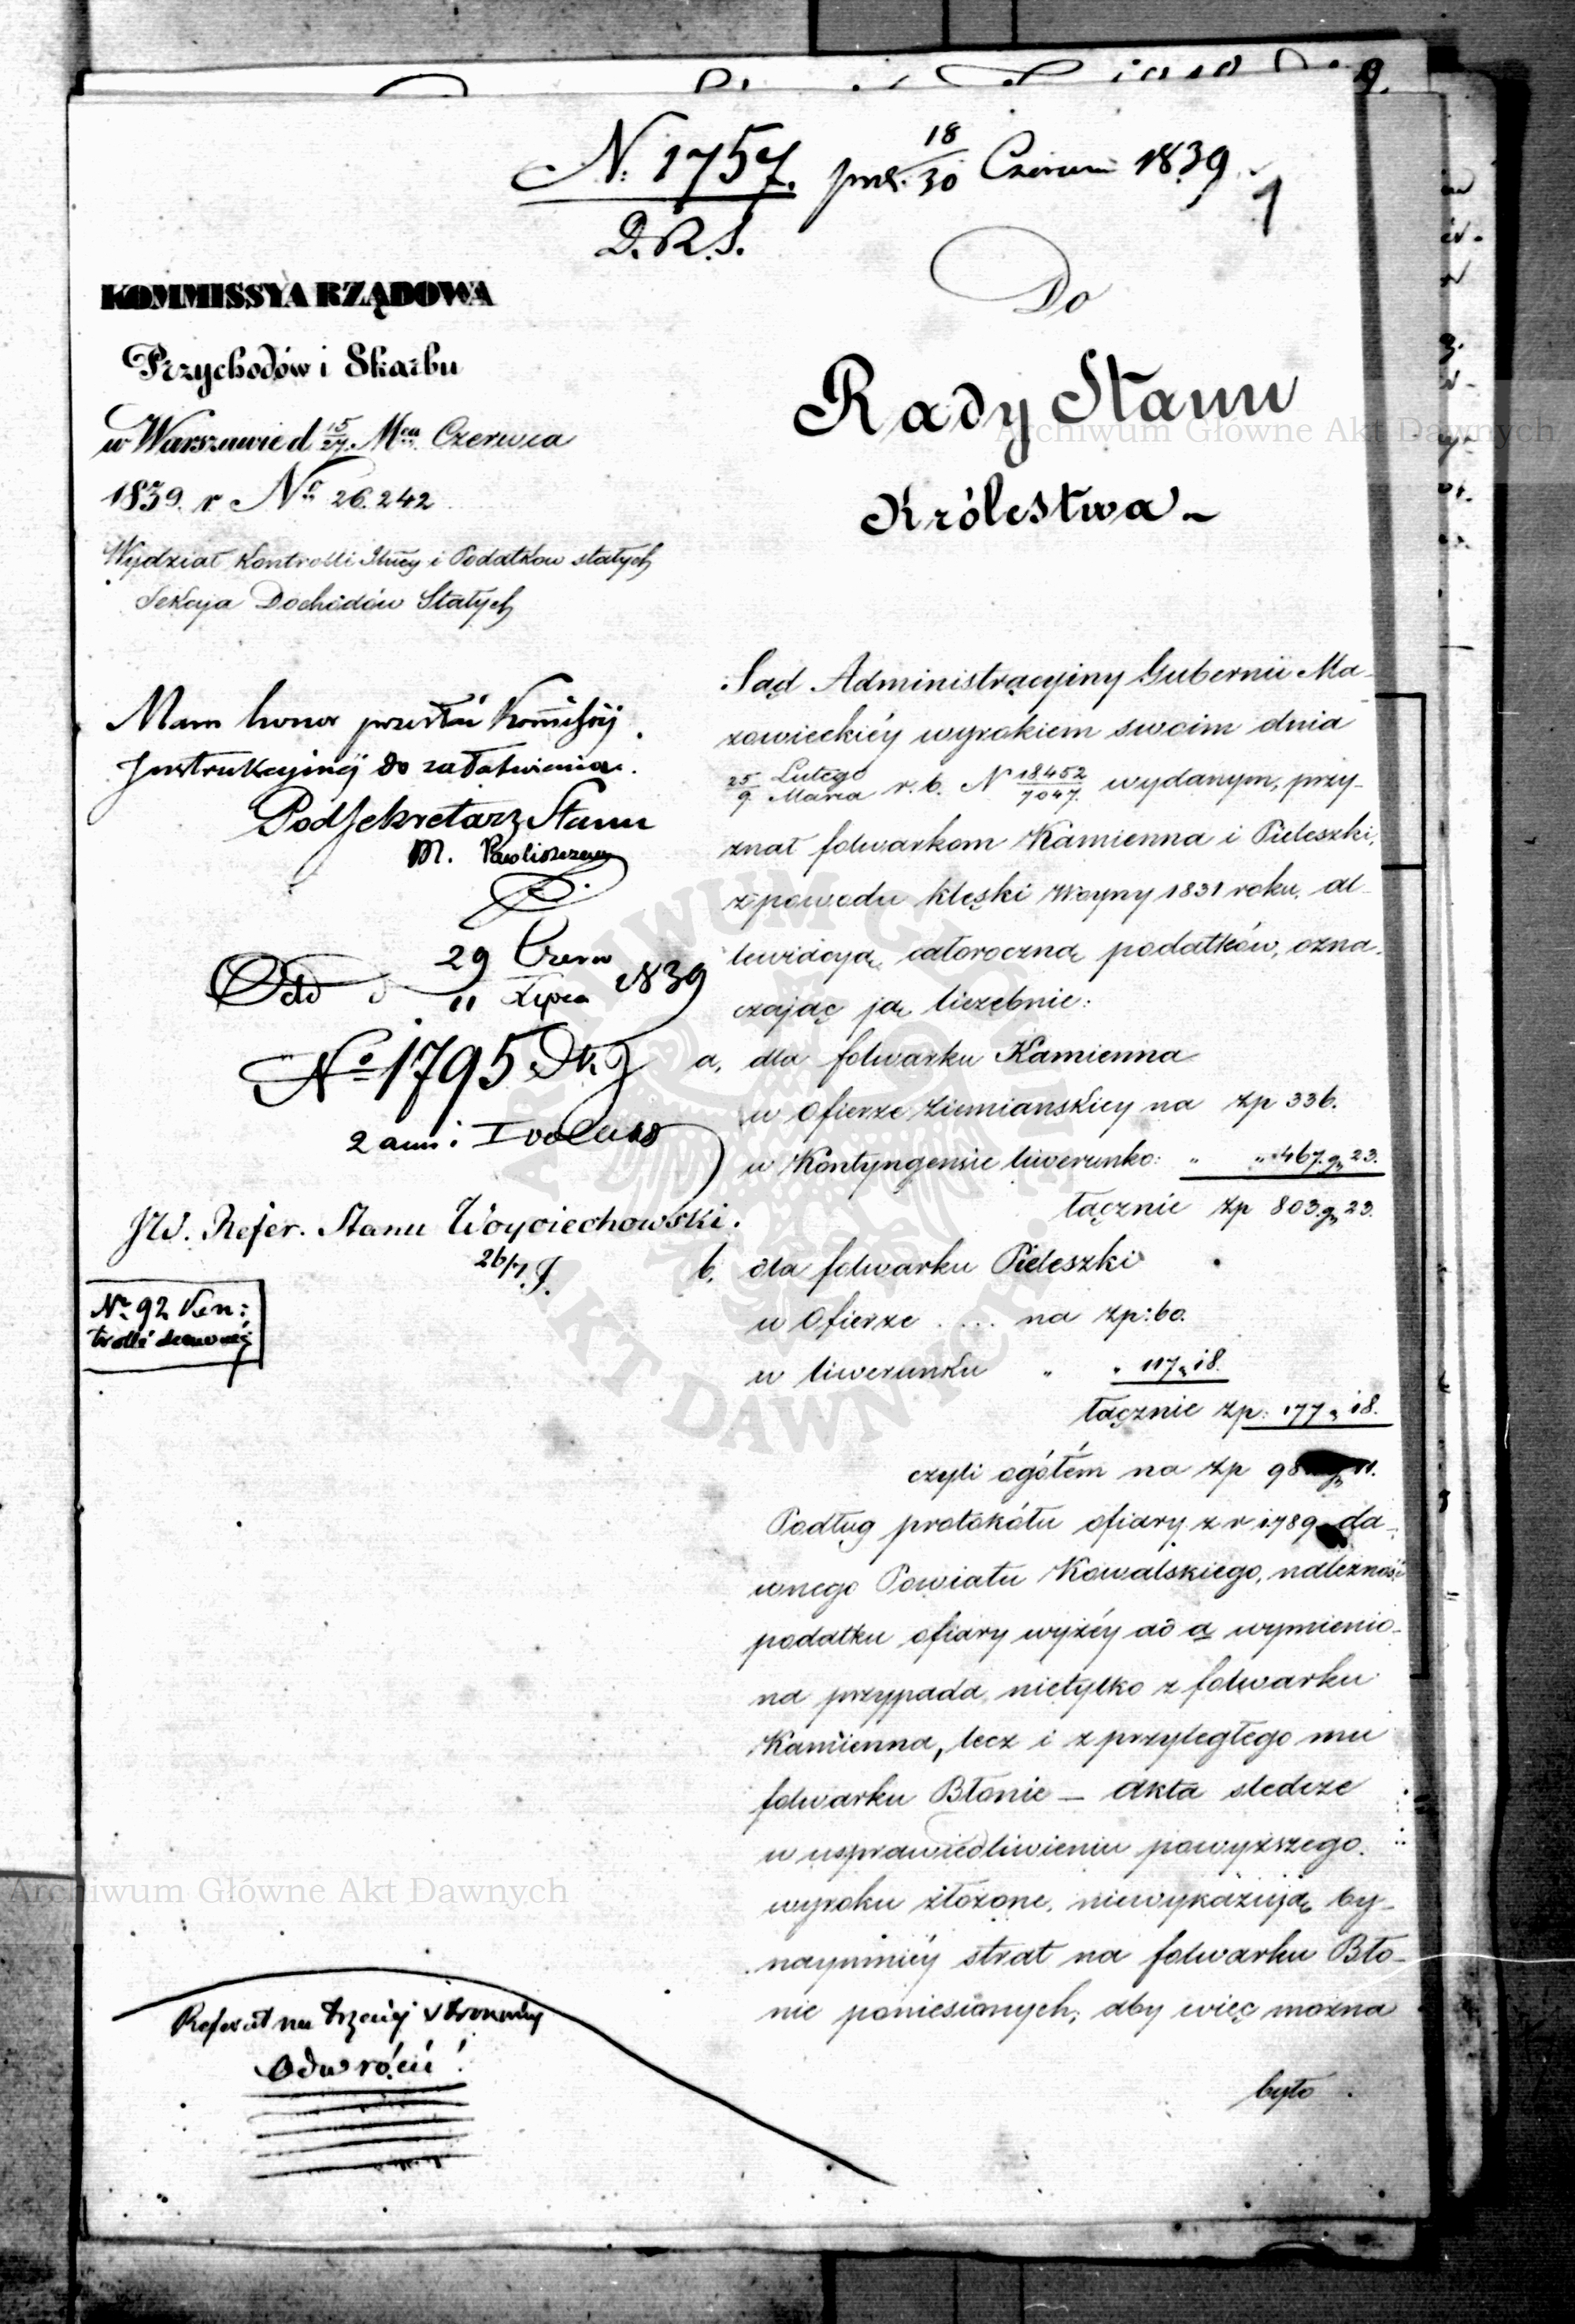 N. 1757. 18/30 Czerwca 1839
D.R.S.
1
KOMMISSYA RZĄDOWA
Przychodów i Skarbu
w Warszawie d 15/27 Mca Czerwca
1839. r No 26.242
Wydział Kontrolli Służby i Podatków stałych
Sekcya Dochodów Stałych
Mam honor przesłać Kommissyi
Instrukcyjnéj do załatwienia.
PodSekretarz Stanu
M. Pawliszczew
29 Czerw
11 Lipca 1839
No 1795
JW. Refer. Stanu Woyciechowski.
26/7
Nr 92 Kon:
trolli
Referat na trzeciej stronnicy
Odwrócić!
Do
Rady Stanu
Królestwa
Sąd Administracyiny Gubernii Ma-
zowieckiéy wyrokiem swoim dnia
25 Lutego / 9 Marca r. b. N 18452/7047 wydanym, przy-
znał folwarkom Kamienna i Pieleszki,
z powodu klęski Woyny 1831 roku, al-
lewiacyą całoroczną podatków, ozna-
czając ją liczebnie:
a, dla folwarku Kamienna
w Ofierze Ziemiańskiey na zp 336.
w Kontyngensie liwerunko: " " 467. g 23.
łącznie zp 803. g 23.
b, dla folwarku Pieleszki
w Ofierze .... na zp: 60.
w liwerunku " " 117 " 18.
łącznie zp: 177 " 18.
czyli ogółem na zp 98 g 11.
Podług protokółu ofiary z r 1789 da-
wnego Powiatu Kowalskiego, należność
podatku ofiary wyżéy ad a wymienio-
na przypada nietylko z folwarku
Kamienna, lecz i z przyległego mu
folwarku Błonie — Akta śledcze
w usprawiedliwieniu powyższego
wyroku złożone, niewykazują by-
naymniéy strat na folwarku Bło-
nie poniesionych; aby więc można
było
Archiwum Główne Akt Dawnych
Archiwum Główne Akt Dawnych
ARCHIWUM GŁÓWNE AKT DAWNYCH